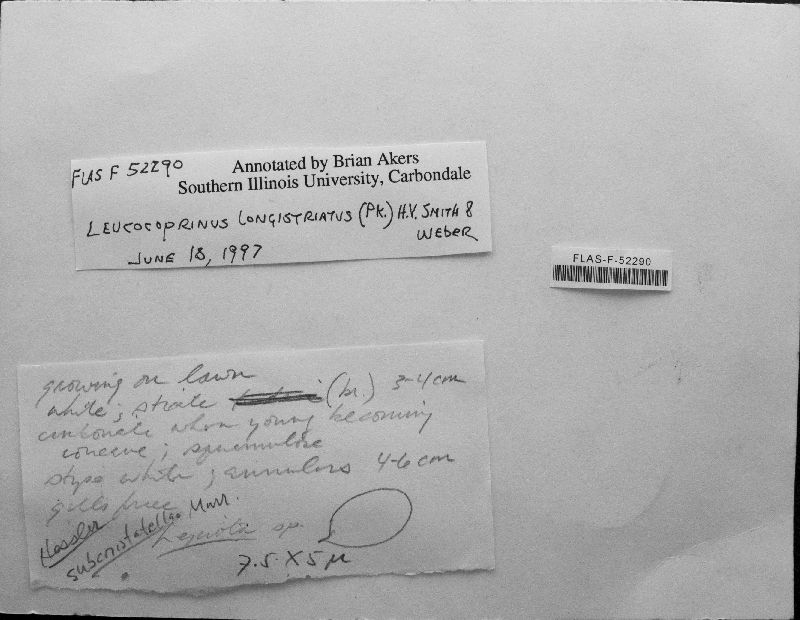 FLAS F 52290
Annotated by Brian Akers
Southern Illinois University, Carbondale
LEUCOCOPRINUS LONGISTRIATUS (PK.) H.V. SMITH &
WEBER
JUNE 18, 1997
FLAS-F-52290
growing on lawn
white; striate (br.) 3-4 cm
umbonate when young becoming
concave; squamulose
stype white; annulus 4-6 cm
gills free
Hessler
subcristatellae Murr.
Lepiota sp.
7.5 X 5 µ